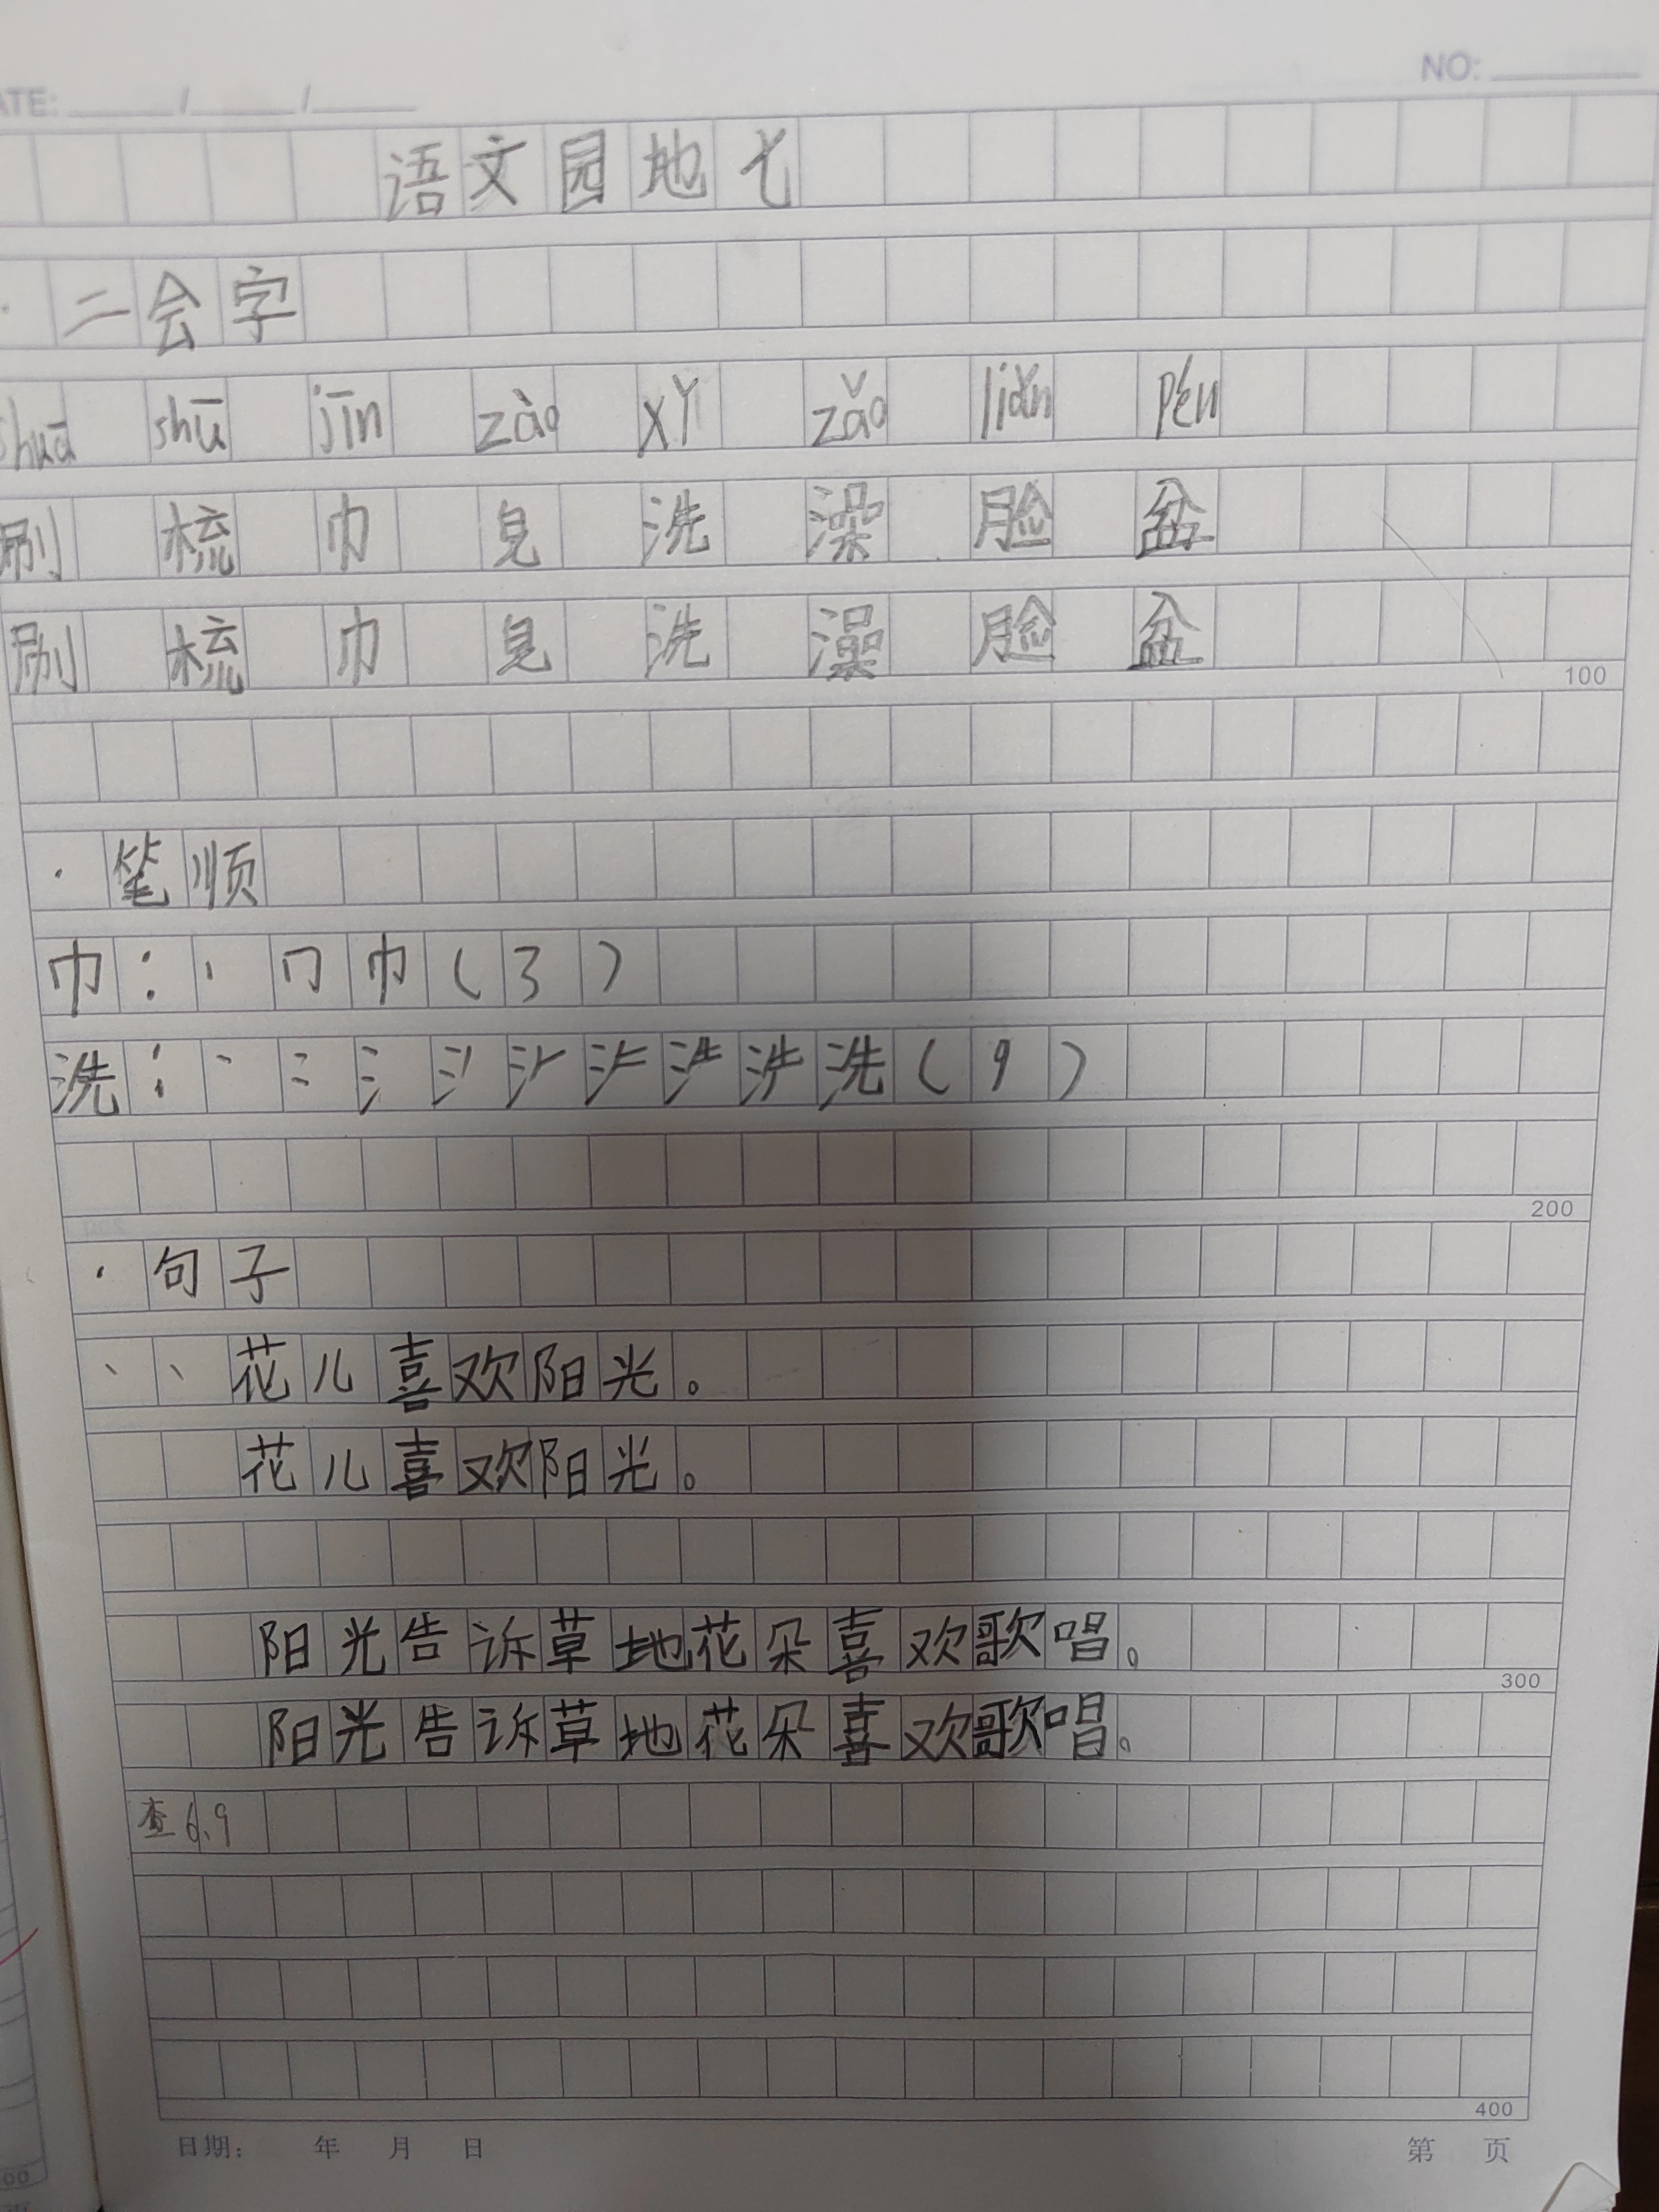 DATE: / / NO:
语文园地七
·二会字
shuā shū jīn zào xǐ zǎo liǎn pén
刷 梳 巾 皂 洗 澡 脸 盆
刷 梳 巾 皂 洗 澡 脸 盆
100
·笔顺
巾:丨冂巾(3)
洗:丶⺀氵(9)
200
·句子
、、花儿喜欢阳光。
花儿喜欢阳光。
阳光告诉草地花朵喜欢歌唱。
300
阳光告诉草地花朵喜欢歌唱。
查6.9
400
日期: 年 月 日 第 页